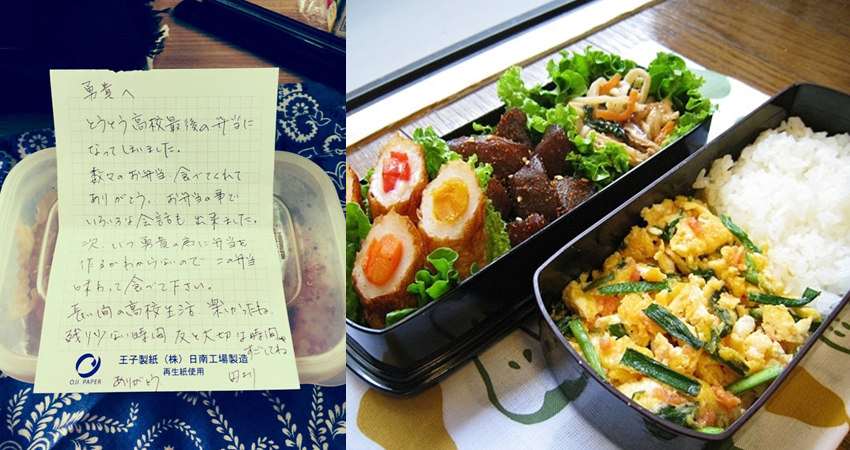 勇貴へ
とうとう高校最後の弁当に
なってしまいました。
数々のお弁当 食べてくれて
ありがとう。お弁当の事で
いろいろな会話も出来ました。
次、いつ勇貴の為に弁当を
作るかわからないので この弁当
味わって食べて下さい。
長い間の高校生活 楽しかったね。
残り少ない時間 友と大切な時間
すごしてね
OJI PAPER
王子製紙（株）日南工場製造
再生紙使用
ありがとう